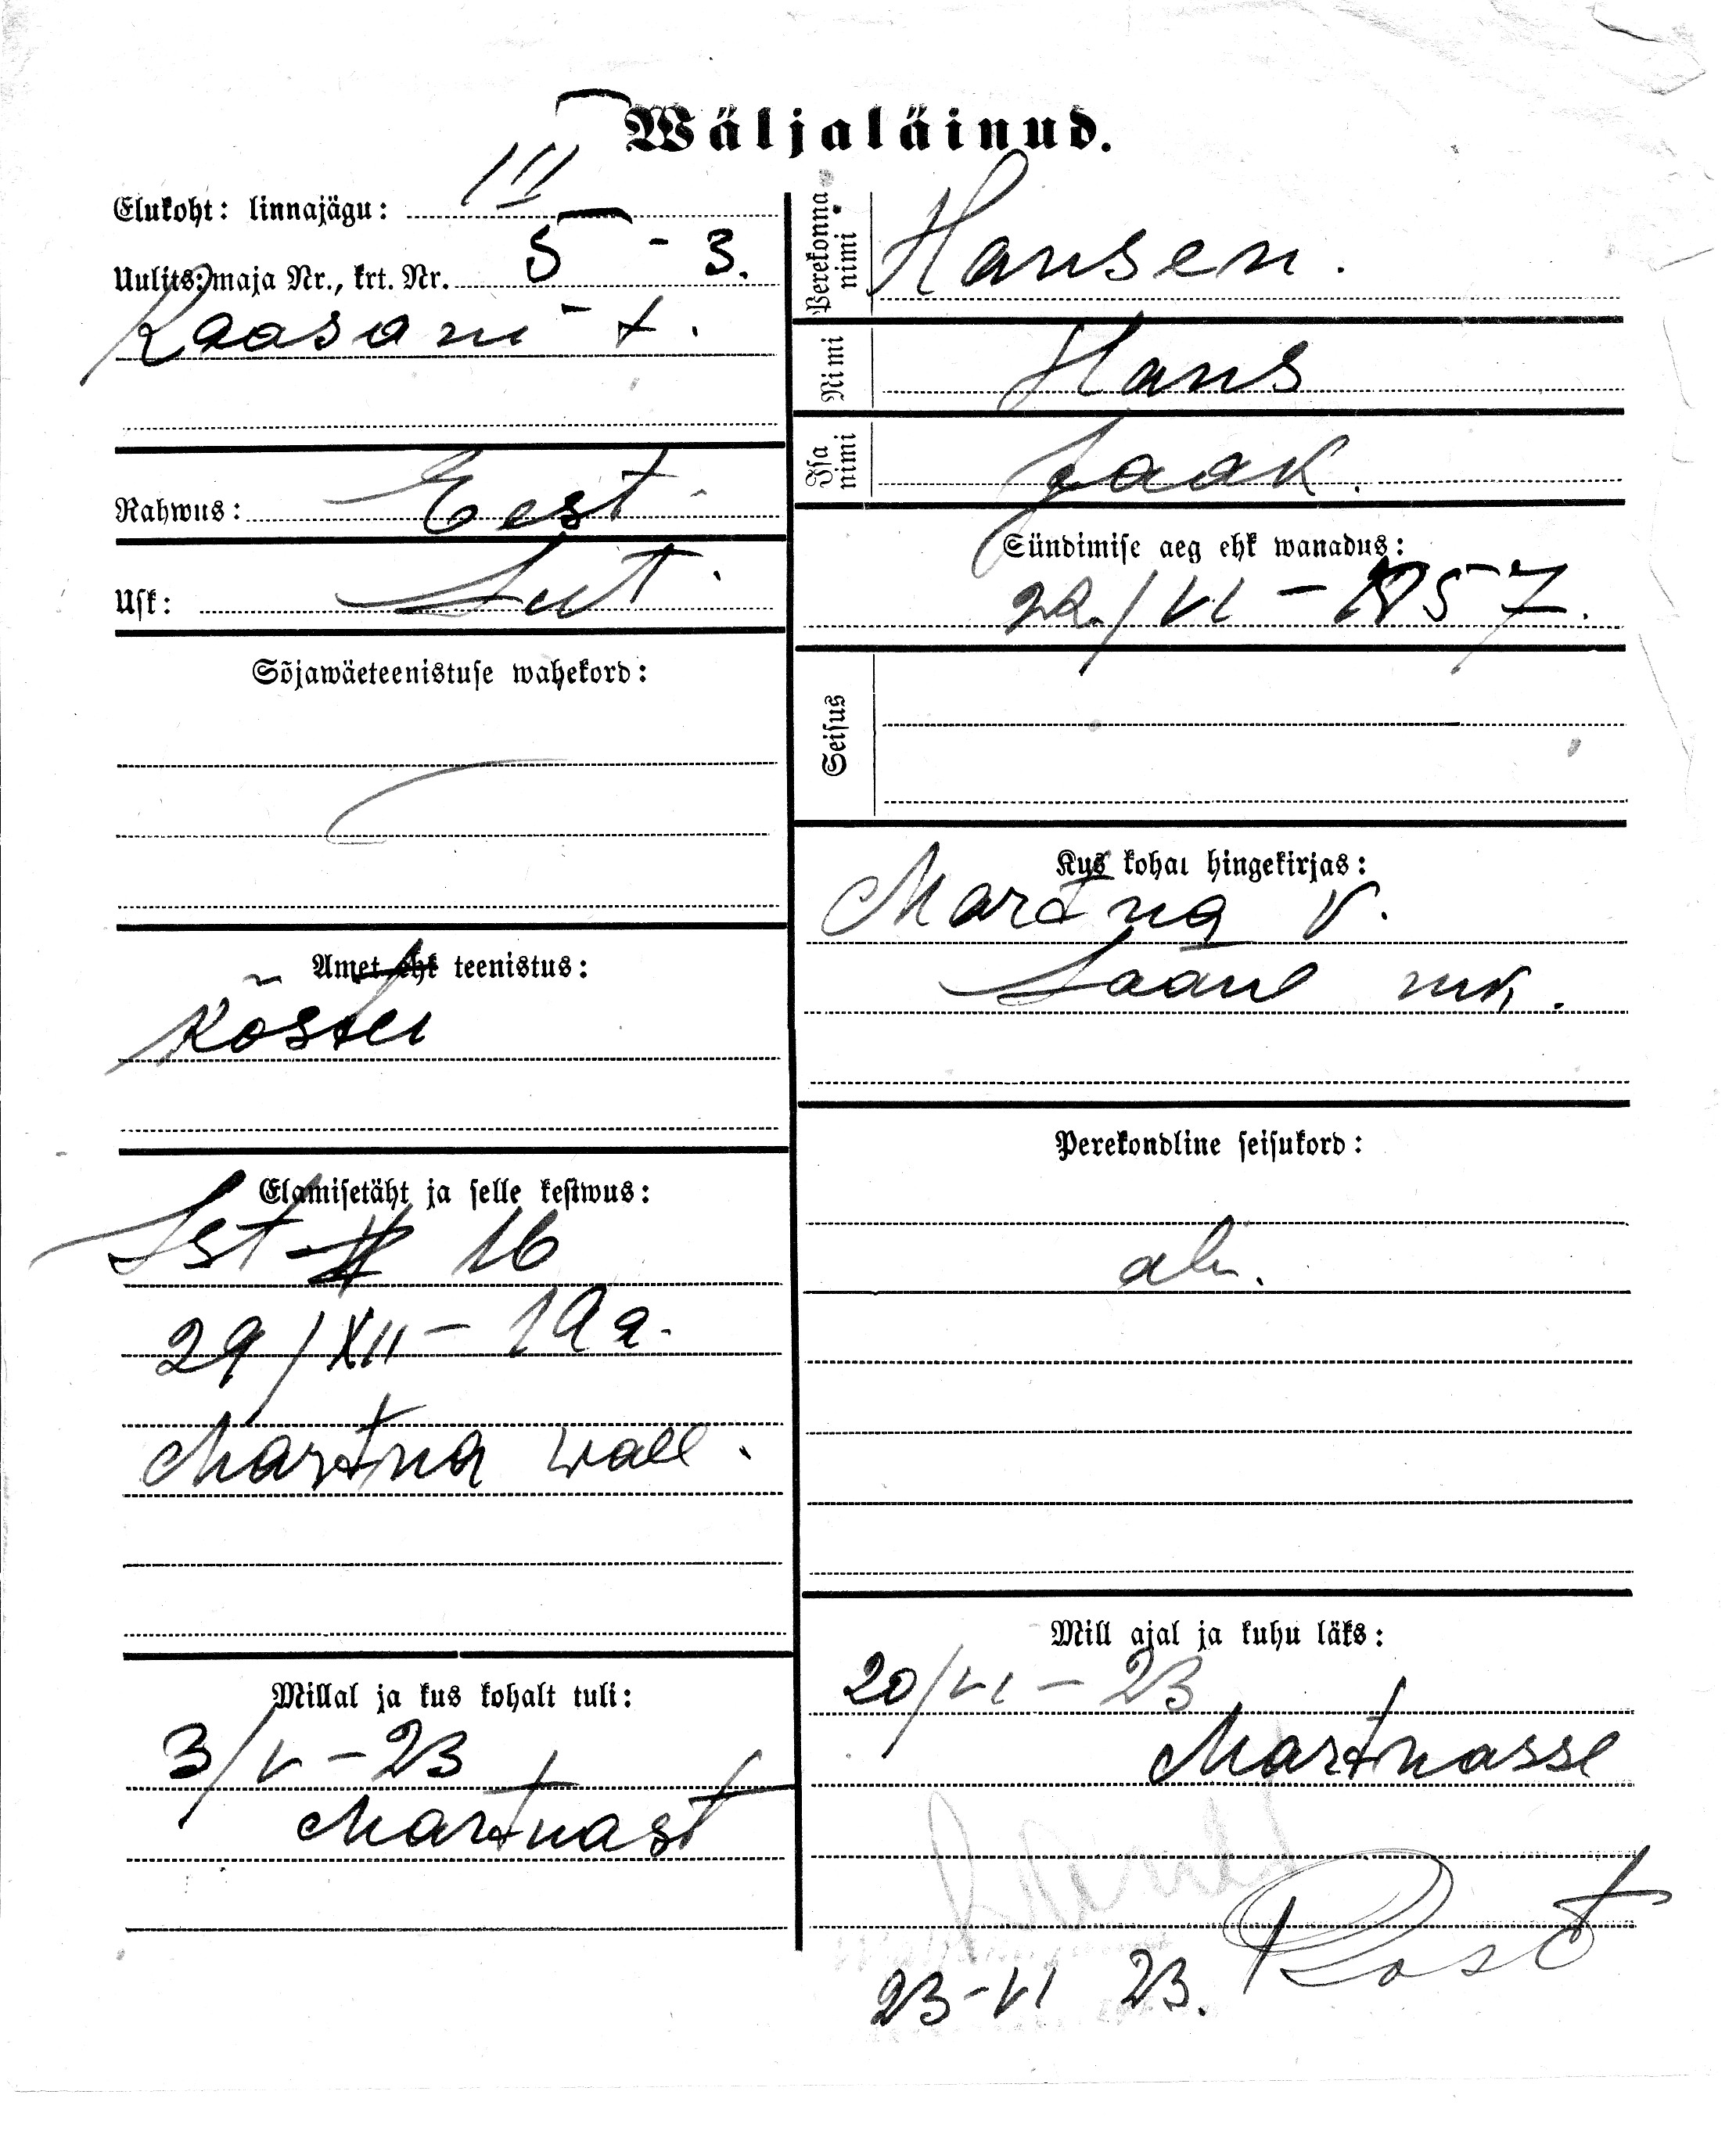 Wäljaläinud.
Elukoht: linnajägu: III
Uulits: maja Nr., krt. Nr. 5 - 3.
Kaasani - t.
Rahwus: Eest.
Usk: Lut.
Sõjawäeteenistuse wahekord:
Amet ehk teenistus:
Köster
Elamisetäht ja selle kestwus:
Ist # 16
29/XII - 19 a.
Martna wall.
Millal ja kus kohalt tuli:
3/V - 23
Martnast
Perekonna nimi Hansen.
Nimi Hans
Isa nimi Jaak.
Sündimise aeg ehk wanadus:
22./VI - 1857.
Seisus
Kus kohal hingekirjas:
Martna v.
Lääne mk.
Perekondline seisukord:
ab.
Mill ajal ja kuhu läks:
20/VI - 23
Martnasse
23-VI 23.